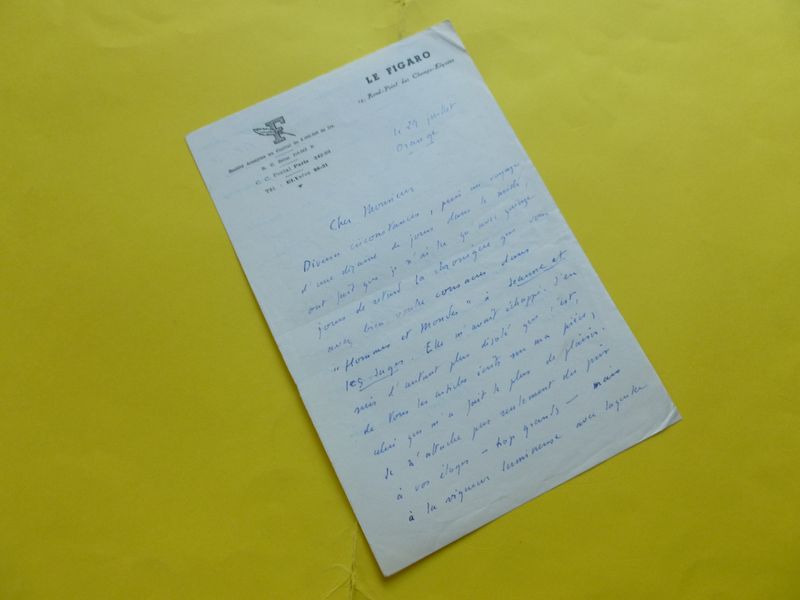 LE FIGARO
14, Rond-Point des Champs-Élysées
F
Société Anonyme au Capital de
R. C. Seine
C. C. Postal Paris
Tél. : ÉLYsées
le 24 juillet
Orange
Cher Monsieur
Diverses circonstances, puis un voyage
d'une dizaine de jours dans le midi,
ont fait que je n'ai lu qu'avec quinze
jours de retard la chronique que vous
avez bien voulu consacrer dans
"Hommes et Mondes" à Jeanne et
les Juges. Elle m'avait échappé. J'en
suis d'autant plus désolé que c'est,
de tous les articles écrits sur ma pièce,
celui qui m'a fait le plus de plaisir.
Je n'attache pas seulement du prix
à vos éloges — trop grands — mais
à la vigueur lumineuse avec laquelle